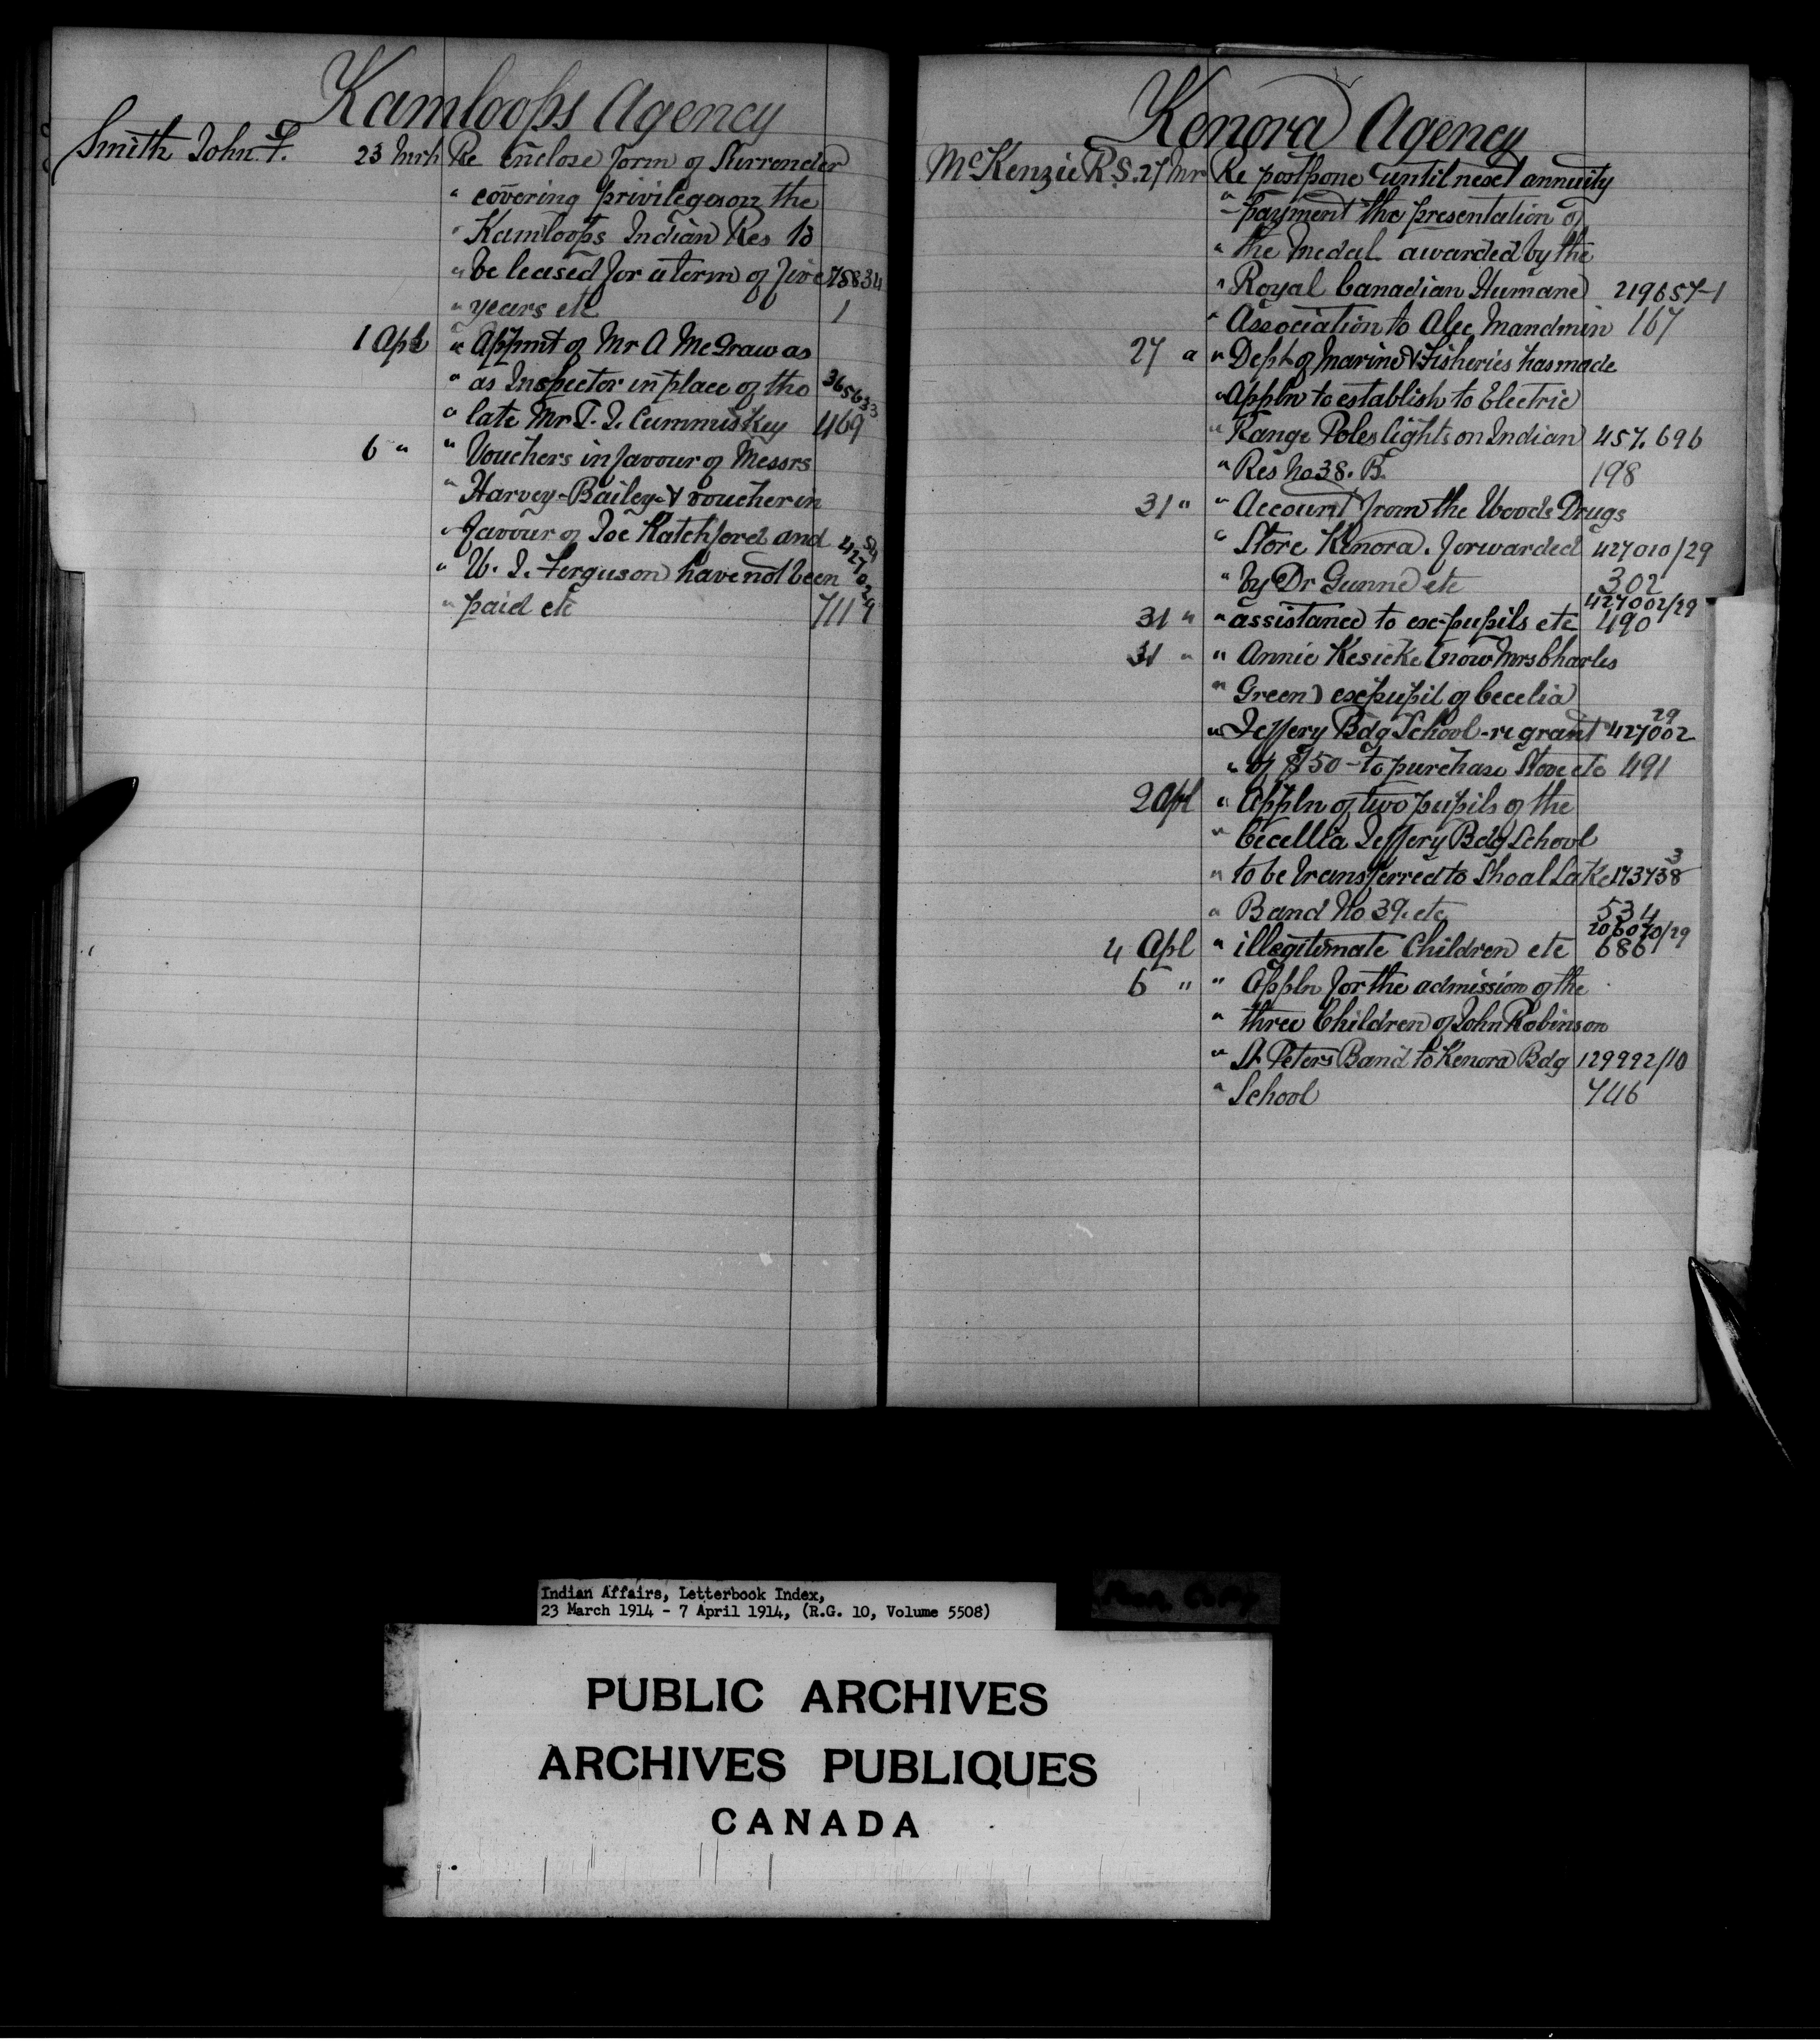 Kamloops Agency
Smith John F. 23 Mrh Re Enclose form of Surrender
" covering privileges on the
" Kamloops Indian Res to
" be leased for a term of five 75834
" years etc 1
1 Apl " Appmt of Mr A McGraw as
" as Inspector in place of the 365633
" late Mr T. J. Cummiskey 469
6 " " Vouchers in favour of Messrs
" Harvey-Bailey & voucher in
" favour of Joe Ratchford and
" W. J. Ferguson have not been
" paid etc 711
Kenora Agency
McKenzie R.S. 27 Mr Re postpone until next annuity
" payment the presentation of
" the medal awarded by the
" Royal Canadian Humane 219657-1
" Association to Alec Mandmin 167
27 " " Dept of Marine & Fisheries has made
" Appln to establish to Electric
" Range Poles lights on Indian 457.696
" Res No 38. B. 198
31 " " Account from the Woods Drugs
" Store Kenora. forwarded 427010/29
" by Dr Gunne etc 302
427002/29
31 " " assistance to ex-pupils etc 490
31 " " Annie Kesicke (now Mrs Charles
" Green) ex pupil of Cecelia
29
" Jeffery Bdg School - re grant 427002
" of $50 - to purchase Stove etc 491
2 Apl " Appln of two pupils of the
" Cecellia Jeffery Bdg School
3
" to be transferred to Shoal Lake 173738
" Band No 39. etc 534
206070/29
4 Apl " illegitimate Children etc 686
6 " " Appln for the admission of the
" three Children of John Robinson
" St Peters Band to Kenora Bdg 129992/10
" School 746
Indian Affairs, Letterbook Index,
23 March 1914 - 7 April 1914, (R.G. 10, Volume 5508)
PUBLIC ARCHIVES
ARCHIVES PUBLIQUES
CANADA